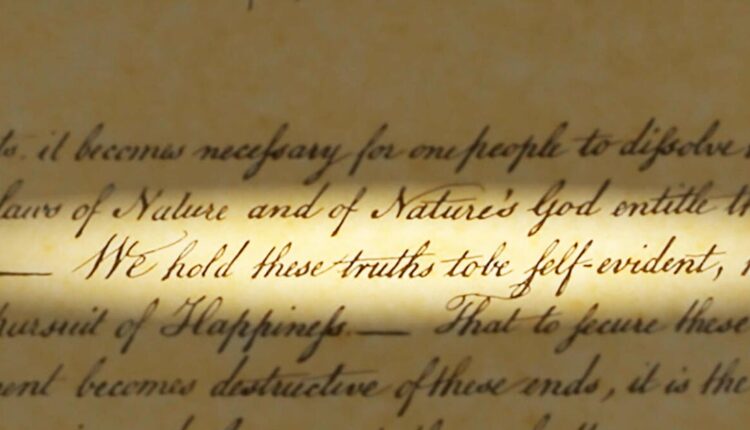 it becomes neceſsary for one people to diſsolve
laws of Nature and of Nature's God entitle
— We hold these truths tobe ſelf-evident,
pursuit of Happineſs. — That to ſecure these
becomes destructive of these ends, it is the